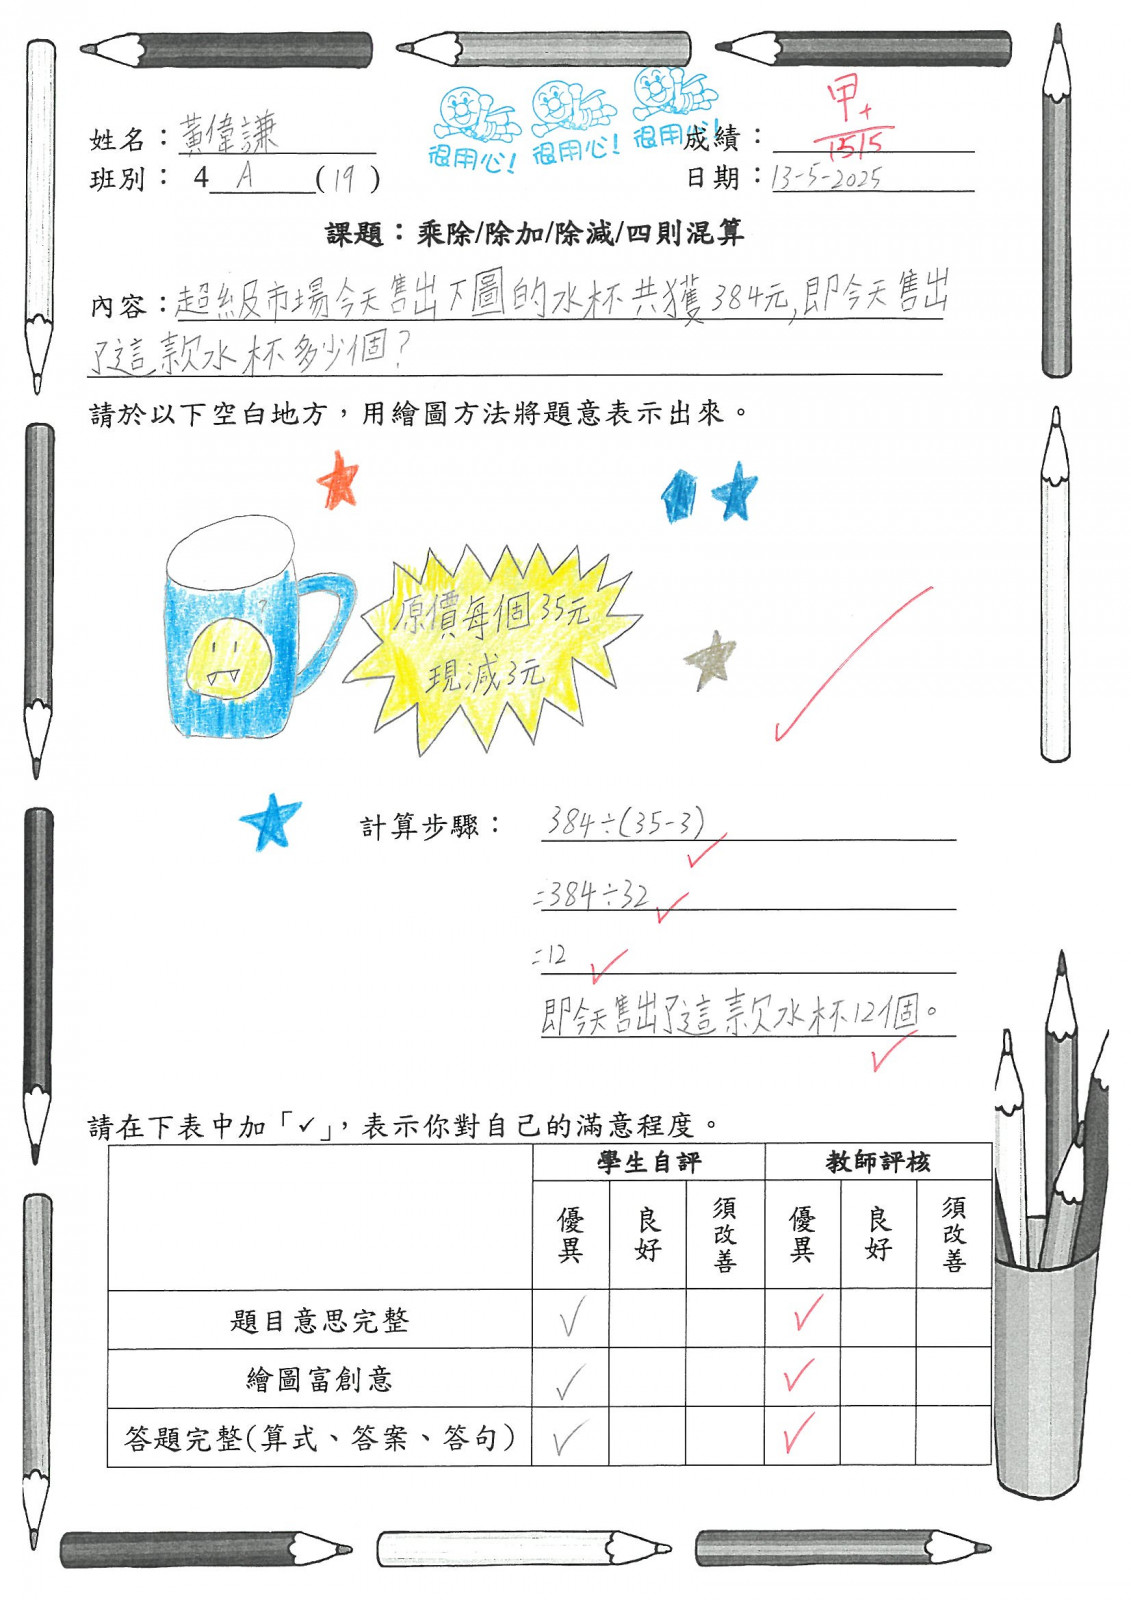 很用心! 很用心! 很用心!
姓名：黃偉謙 成績：甲+
1515
班別：4 A (19) 日期：13-5-2025
課題：乘除/除加/除減/四則混算
內容：超級市場今天售出下圖的水杯共獲384元,即今天售出
了這款水杯多少個?
請於以下空白地方，用繪圖方法將題意表示出來。
原價每個35元
現減3元
計算步驟： 384÷(35-3)
=384÷32
=12
即今天售出了這款水杯12個。
請在下表中加「✓」，表示你對自己的滿意程度。
學生自評 教師評核
優異 良好 須改善 優異 良好 須改善
題目意思完整 ✓ ✓
繪圖富創意 ✓ ✓
答題完整(算式、答案、答句) ✓ ✓